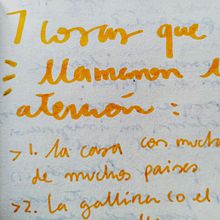 7 cosas que
llamaron l
atención :
> 1. la casa con mucha
de muchos paises
> 2. La gallina (o el